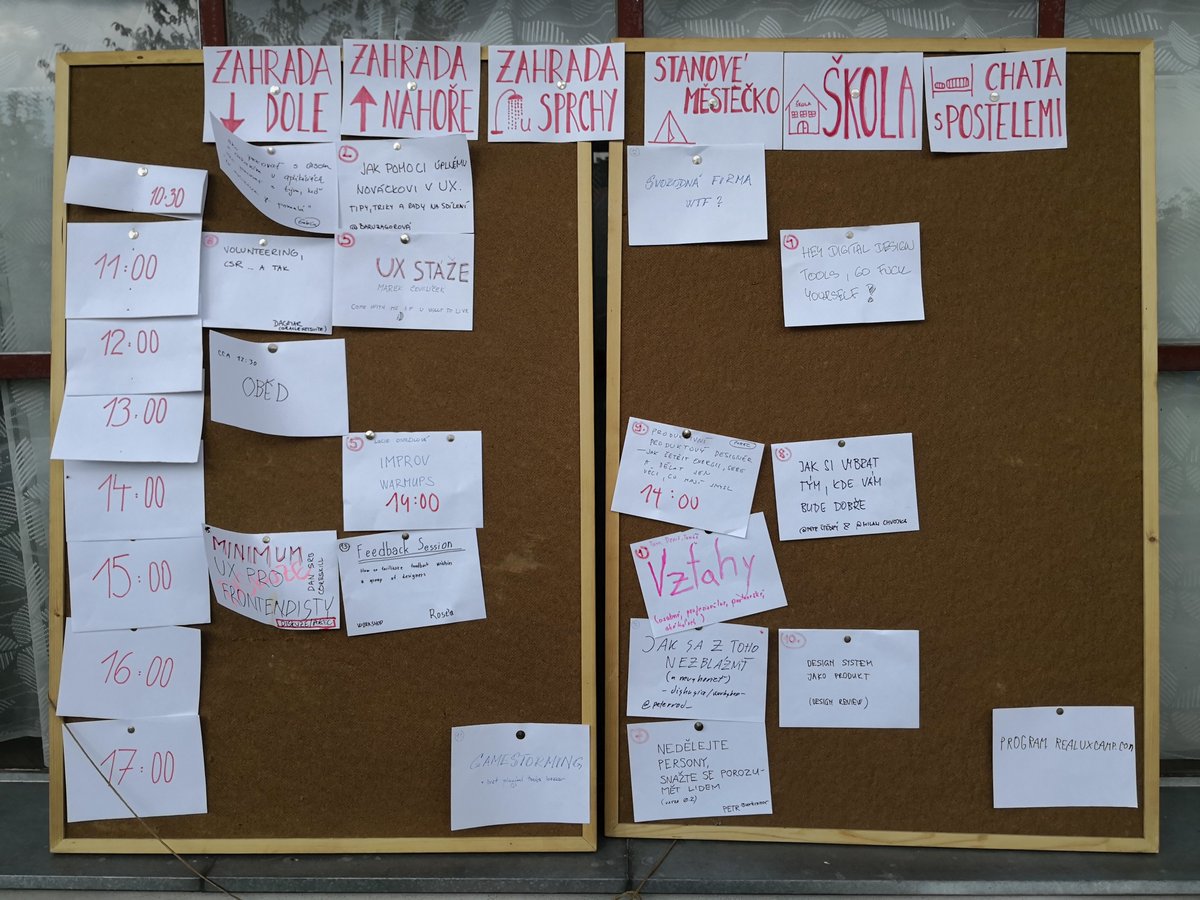 ZAHRADA
DOLE
ZAHRADA
NAHOŘE
ZAHRADA
u SPRCHY
STANOVÉ
MĚSTEČKO
ŠKOLA
ŠKOLA
CHATA
s POSTELEMI
10:30
11:00
12:00
13:00
14:00
15:00
16:00
17:00
JAK POMOCI ÚPLNÉMU
NOVÁČKOVI V UX.
TIPY, TRIKY A RADY NA SDÍLENÍ
@BARUZAGOROVÁ
VOLUNTEERING,
CSR... A TAK
DAGMAR
5
UX STÁŽE
MAREK
COME WITH ME IF U WANT TO LIVE
CCA 12:30
OBĚD
5
LUCIE
IMPROV
WARMUPS
14:00
MINIMUM
UX PRO
FRONTENDISTY
DAN SRB
DISKUZE/
13
Feedback Session
How to facilitate feedback within
a group of designers
WORKSHOP
Rosťa
GAMESTORMING
SVOBODNÁ FIRMA
WTF?
HEY DIGITAL DESIGN
TOOLS, GO FUCK
YOURSELF?
PRODUKTIVNÍ
PRODUKTOVÝ DESIGNÉR
— JAK ŠETŘIT ENERGII, SEBE
A DĚLAT JEN
VĚCI, CO MAJÍ SMYSL
14:00
8.
JAK SI VYBRAT
TÝM, KDE VÁM
BUDE DOBŘE
Vztahy
JAK SA Z TOHO
NEZBLÁZNIŤ
(a nevyhorieť)
10.
DESIGN SYSTEM
JAKO PRODUKT
(DESIGN REVIEW)
NEDĚLEJTE
PERSONY,
SNAŽTE SE POROZU-
MĚT LIDEM
PETR
PROGRAM REALUXCAMP.COM